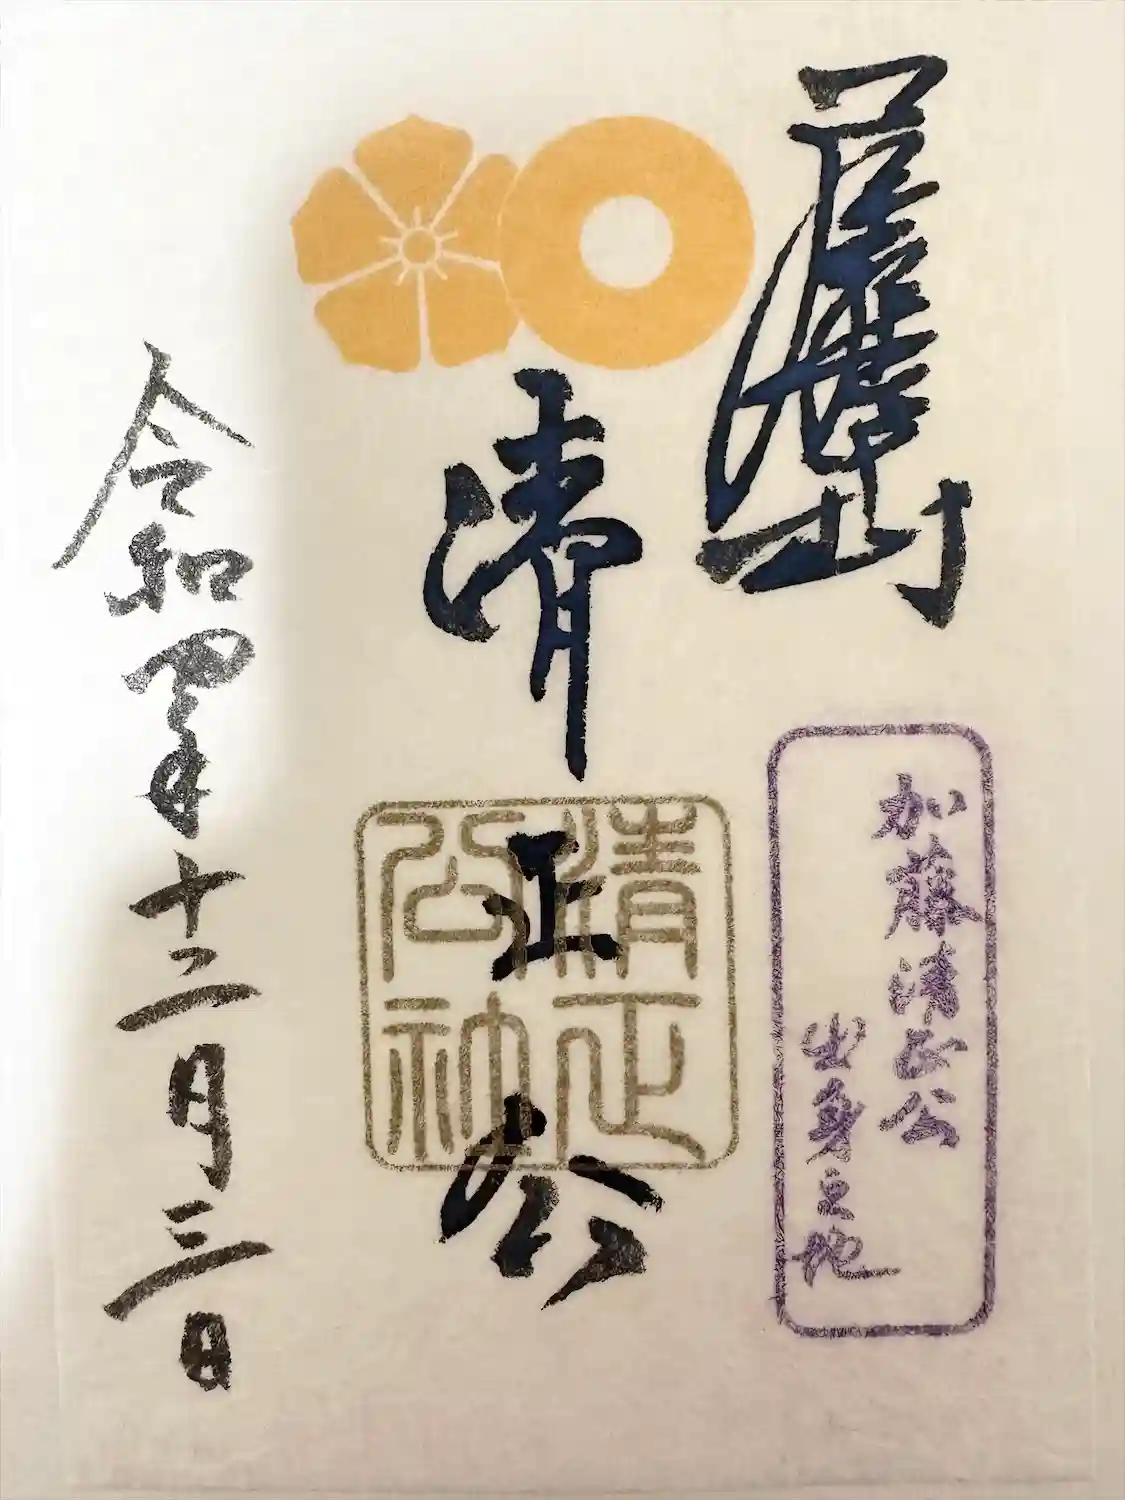 加藤清正公
出身之地
清正公
清正
公神
令和四年十二月三日